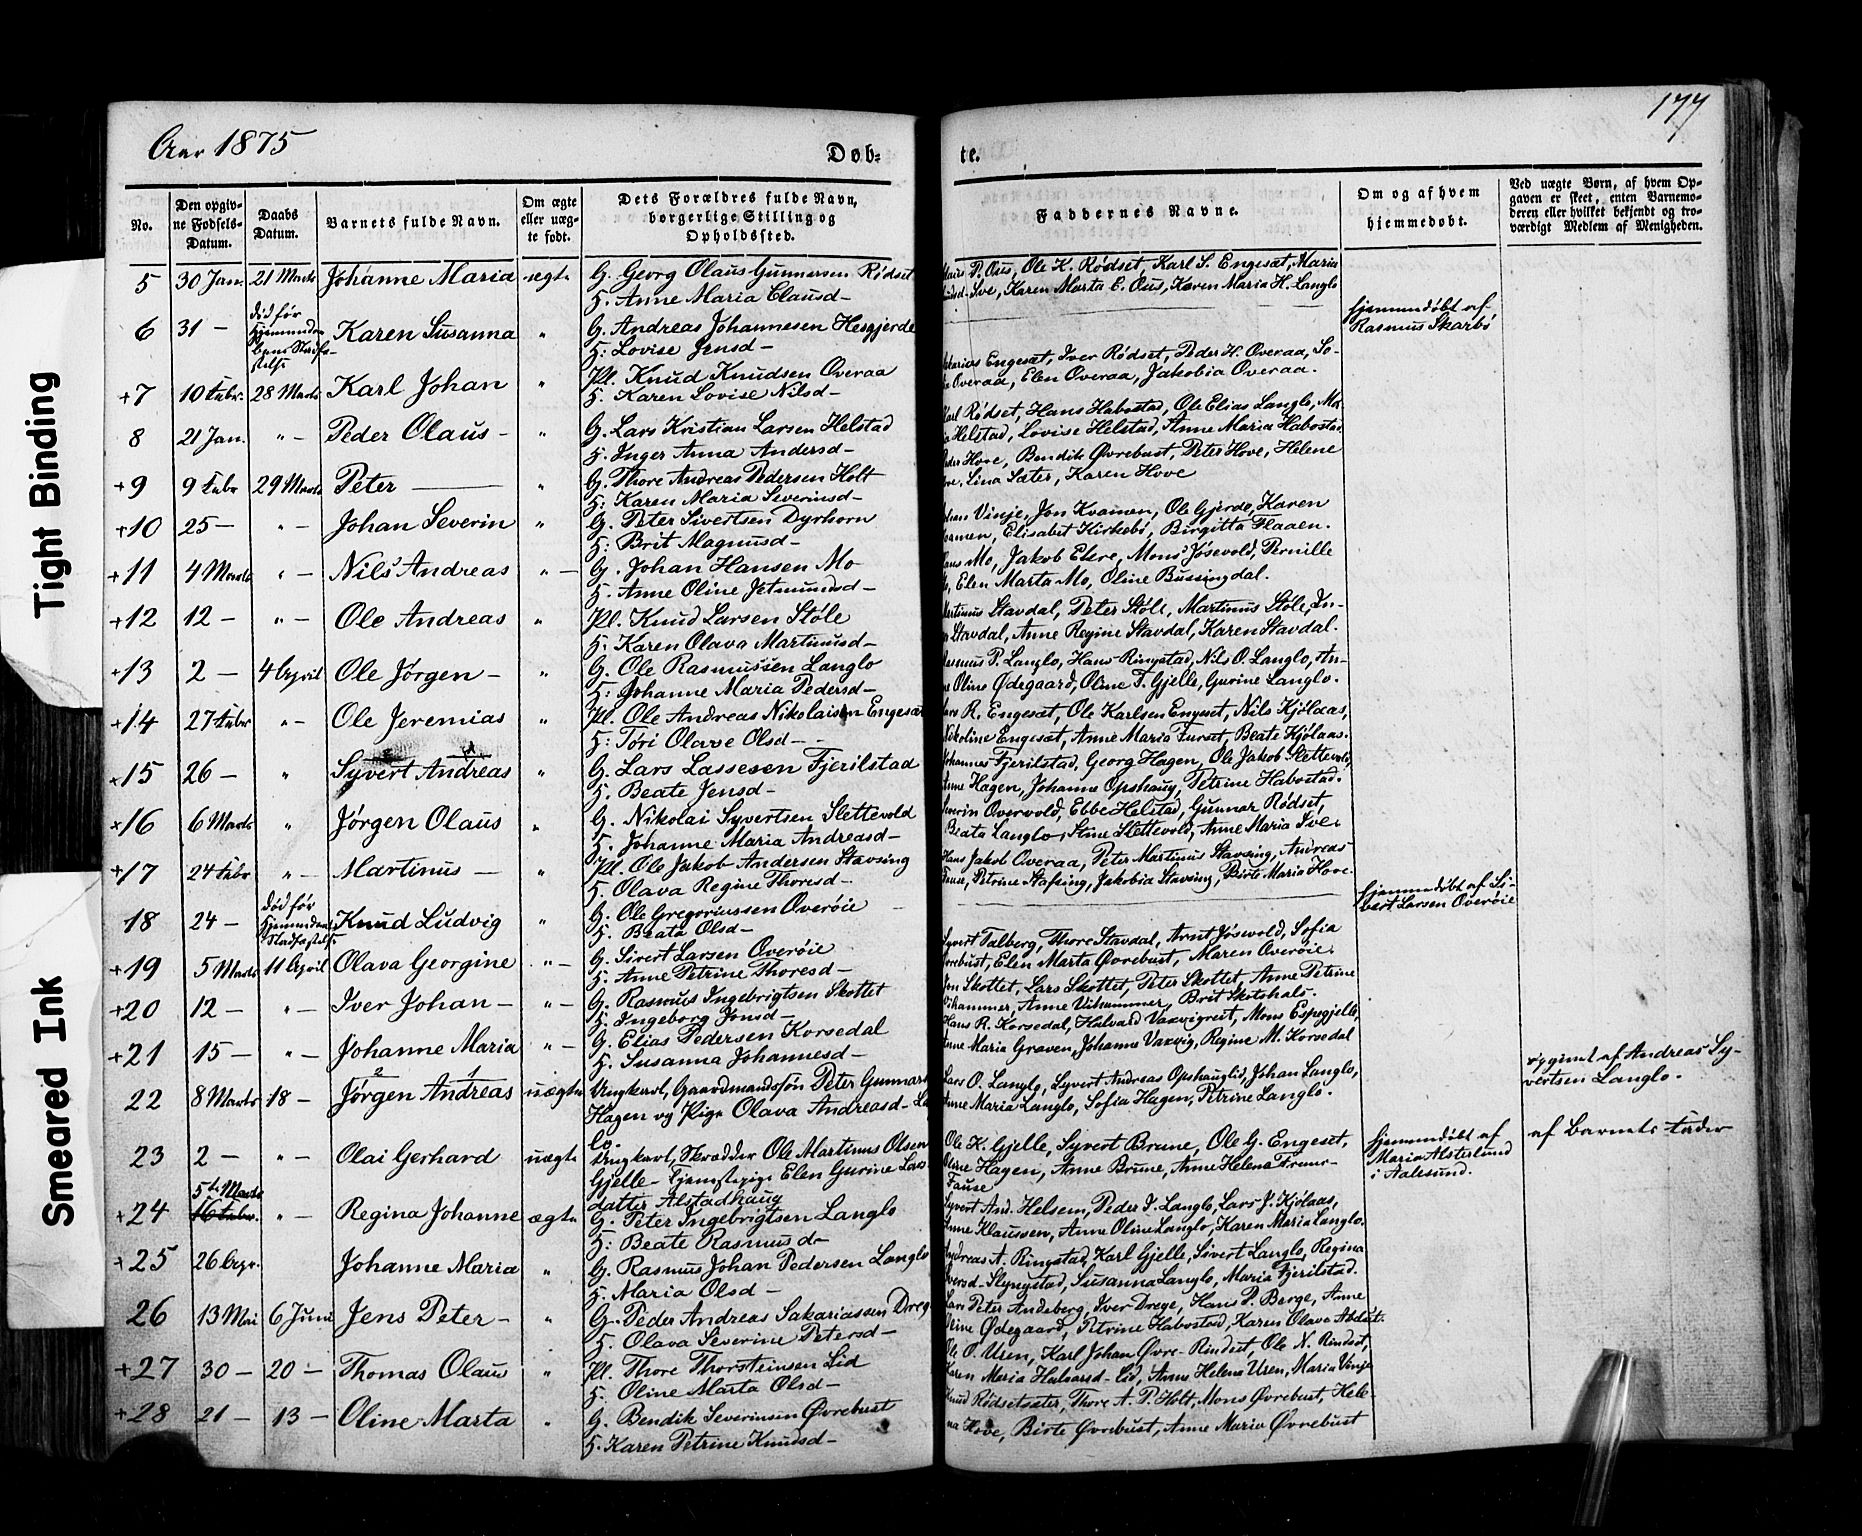 Aar 1875
177
Døb-
te.
No.
Den opgiv-
ne Fødsels-
Datum.
Daabs
Datum.
Barnets fulde Navn.
Om ægte
eller uæg-
te født.
Dets Forældres fulde Navn,
borgerlige Stilling og
Opholdssted.
Faddernes Navne.
Om og af hvem
hjemmedøbt.
Ved uægte Børn, af hvem Op-
gaven er skeet, enten Barnemo-
deren eller hvilket bekjendt og tro-
værdigt Medlem af Menigheden.
5 30 Jan. 21 Marts Johanne Maria ægte G. Georg Olaus Gunnarsen Rødset
H. Anne Maria Clausd-
P. Ous, Ole K. Rødset, Karl S. Engeset, Maria
Ive, Karen Marta E. Ous, Karen Maria H. Langlo
6 31 - død før Karen Susanna " G. Andreas Johannesen Hesgjerde
H: Lovise Jensd-
hjemmedøbt af
Rasmus Skarbø
+7 10 Febr. 28 Marts Karl Johan " Pl. Knud Knudsen Overaa
H. Karen Lovise Nilsd-
Engeset, Iver Rødset, Peder H. Overaa, So-
Overaa, Elen Overaa, Jakobia Overaa.
8 21 Jan. " - Peder Olaus - " G. Lars Kristian Larsen Helstad
H. Inger Anna Andersd-
Rødset, Hans Habostad, Ole Elias Langlo, Mar-
Helstad, Lovise Helstad, Anne Maria Habostad
+9 9 Febr 29 Marts Peter " G. Thore Andreas Pedersen Holt
H: Karen Maria Severinsd-
Hove, Bendik Øvrebust, Peter Hove, Helene
Lina Sæter, Karen Hove
+10 25 - " - Johan Severin " G. Peter Sivertsen Dyrhorn
H: Brit Magnusd-
Vinje, Jon Kvamen, Ole Gjerde, Karen
Elisabet Kirkebø, Birgitta Flaaen.
+11 4 Marts " - Nils Andreas " - G. Johan Hansen Mo
H. Anne Oline Jetmundsd-
Mo, Jakob Ekre, Mons Jøsevold, Pernille
Elen Marta Mo, Oline Bussingdal.
+12 12 - " - Ole Andreas " Pl. Knud Larsen Støle
H: Karen Olava Martinusd-
Martinus Stavdal, Peter Støle, Martinus Støle, In-
Stavdal, Anne Regine Stavdal, Karen Stavdal.
+13 2 - 4 April Ole Jørgen - " G. Ole Rasmussen Langlo
H: Johanne Maria Pedersd-
Rasmus P. Langlo, Hans Ringstad, Nils O. Langlo, An-
Oline Ødegaard, Oline T. Gjelle, Gurine Langlo.
+14 27 Febr " - Ole Jeremias " Pl. Ole Andreas Nikolaisen Engeset
H: Tøri Olave Olsd-
Lars R. Engeset, Ole Karlsen Engeset, Nils Kjølaas,
Nikoline Engeset, Anne Maria Furset, Beate Kjølaas.
×15 26 - " Syvert Andreas " G. Lars Lassesen Fjerilstad
H. Beate Jensd-
Johannes Fjerilstad, Georg Hagen, Ole Jakob Slettevold,
Anne Hagen, Johanne Opshaug, Petrine Habostad.
×16 6 Marts " Jørgen Olaus " G. Nikolai Syvertsen Slettevold
H. Johanne Maria Andreasd-
Severin Overvold, Ebbe Helstad, Gunnar Rødset,
Beata Langlo, Stine Slettevold, Anne Maria Ive.
+17 24 Febr " - Martinus - " Pl. Ole Jakob Andersen Stavseng
H. Olava Regine Thoresd-
Hans Jakob Overaa, Peter Martinus Stavseng, Andreas
Petrine Stafseng, Jakobia Stavseng, Birte Maria Hove.
18 24 - død før Knud Ludvig " G. Ole Gregoriussen Overøie
H. Beata Olsd-
hjemmedøbt af Si-
vert Larsen Overøie
+19 5 Marts 11 April Olava Georgine " - G. Sivert Larsen Overøie
H: Anne Petrine Thoresd-
Syvert Talberg, Thore Stavdal, Arnt Jøsvold, Sofia
Øvrebust, Elen Marta Øvrebust, Maren Overøie.
+20 12 - " - Iver Johan - " - G. Rasmus Ingebrigtsen Skottet
H: Ingeborg Jonsd-
Jon Skottet, Lars Skottet, Peter Skottet, Anne Petrine
Vihammer, Anne Vihammer, Brit Skitshals.
+21 15 - " - Johanne Maria " - G. Elias Pedersen Korsedal
H. Susanna Johannesd-
Hans R. Korsedal, Halvard Vaxvigreit, Mons Espegjelle,
Anne Maria Graven, Johanne Vaxvig, Regine M. Korsedal
22 8 Marts 18 - Jørgen Andreas uægte Ungkarl, Gaardmandssøn Peter Gunnars
Hagen og Pige Olava Andreasd- La
lo.
Lars O. Langlo, Syvert Andreas Opshauglid, Johan Langlo,
Anne Maria Langlo, Sofia Hagen, Petrine Langlo.
opgivet af Andreas Sy-
vertsen Langlo.
23 2 - " - Olai Gerhard uægte Ungkarl, Skrædder Ole Martinus Olsen
Gjelle - Tjenestepige Elen Gurine Lars-
datter Alstadhaug
Ole K. Gjelle, Syvert Brune, Ole G. Engeset,
Oline Hagen, Anne Brune, Anne Helena
Fause
hjemmedøbt af
Maria Alsteslund
i Aalesund.
af Barnets Fader
+24 5te Marts 16 Febr. " - Regina Johanne ægte G. Peter Ingebrigtsen Langlo
H: Beate Rasmusd-
Syvert And. Helsem, Peder I. Langlo, Lars J. Kjølaas,
Anne Klaussen, Anne Oline Langlo, Karen Maria Langlo.
+25 26 Apr. Johanne Maria " G. Rasmus Johan Pedersen Langlo
H. Maria Olsd-
Andreas A. Ringstad, Karl Gjelle, Sivert Langlo, Regina
Slyngstad, Susanna Langlo, Maria Fjerilstad.
26 13 Mai 6 Juni Jens Peter - " G. Peder Andreas Sakariassen Dreg
H. Olava Severine Petersd-
Lars Peter Andeberg, Iver Drege, Hans P. Berge, Anne
Ødegaard, Petrine Habostad, Karen Olava
+27 30 - 20 - Thomas Olaus " Pl. Thore Thorsteinsen Lid
H. Oline Marta Olsd-
Ole O. Uren, Karl Johan Øvre-Rindset, Ole N. Rindset,
Karen Maria Lid, Anne Helena Uren, Maria Vinje
+28 21 - 13 - Oline Marta " G. Bendik Severinsen Øvrebust
H. Karen Petrine Knudsd-
Knud Rødsetsæter, Thore A. P. Holt, Mons Øvrebust, Hele-
na Hove, Birte Øvrebust, Anne Maria Øvrebust
Tight Binding
Smeared Ink